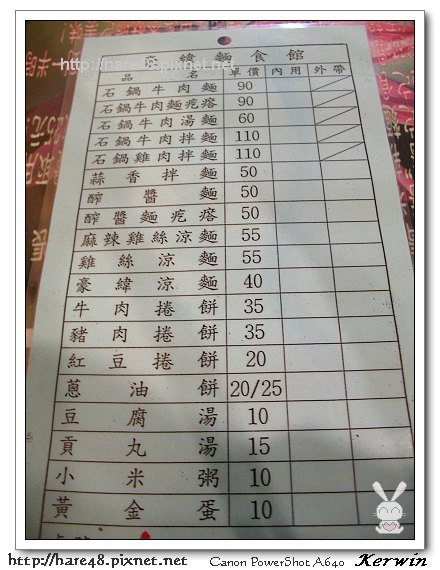 緯麵食館
http://hare48.pixnet.net
品名 單價 內用 外帶
石鍋牛肉麵 90
石鍋牛肉麵疙瘩 90
石鍋牛肉湯麵 60
石鍋牛肉拌麵 110
石鍋雞肉拌麵 110
蒜香拌麵 50
醡醬麵 50
醡醬麵疙瘩 50
麻辣雞絲涼麵 55
雞絲涼麵 55
豪緯涼麵 40
牛肉捲餅 35
豬肉捲餅 35
紅豆捲餅 20
蔥油餅 20/25
豆腐湯 10
貢丸湯 15
小米粥 10
黃金蛋 10
http://hare48.pixnet.net Canon PowerShot A640 Kerwin